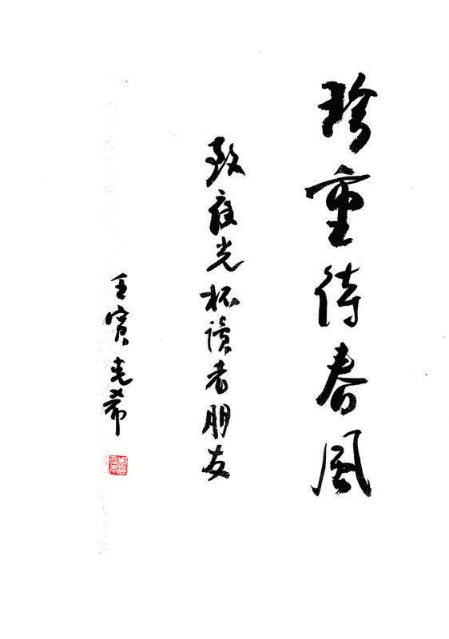 珍重待春风
致夜光杯读者朋友
壬寅 光希